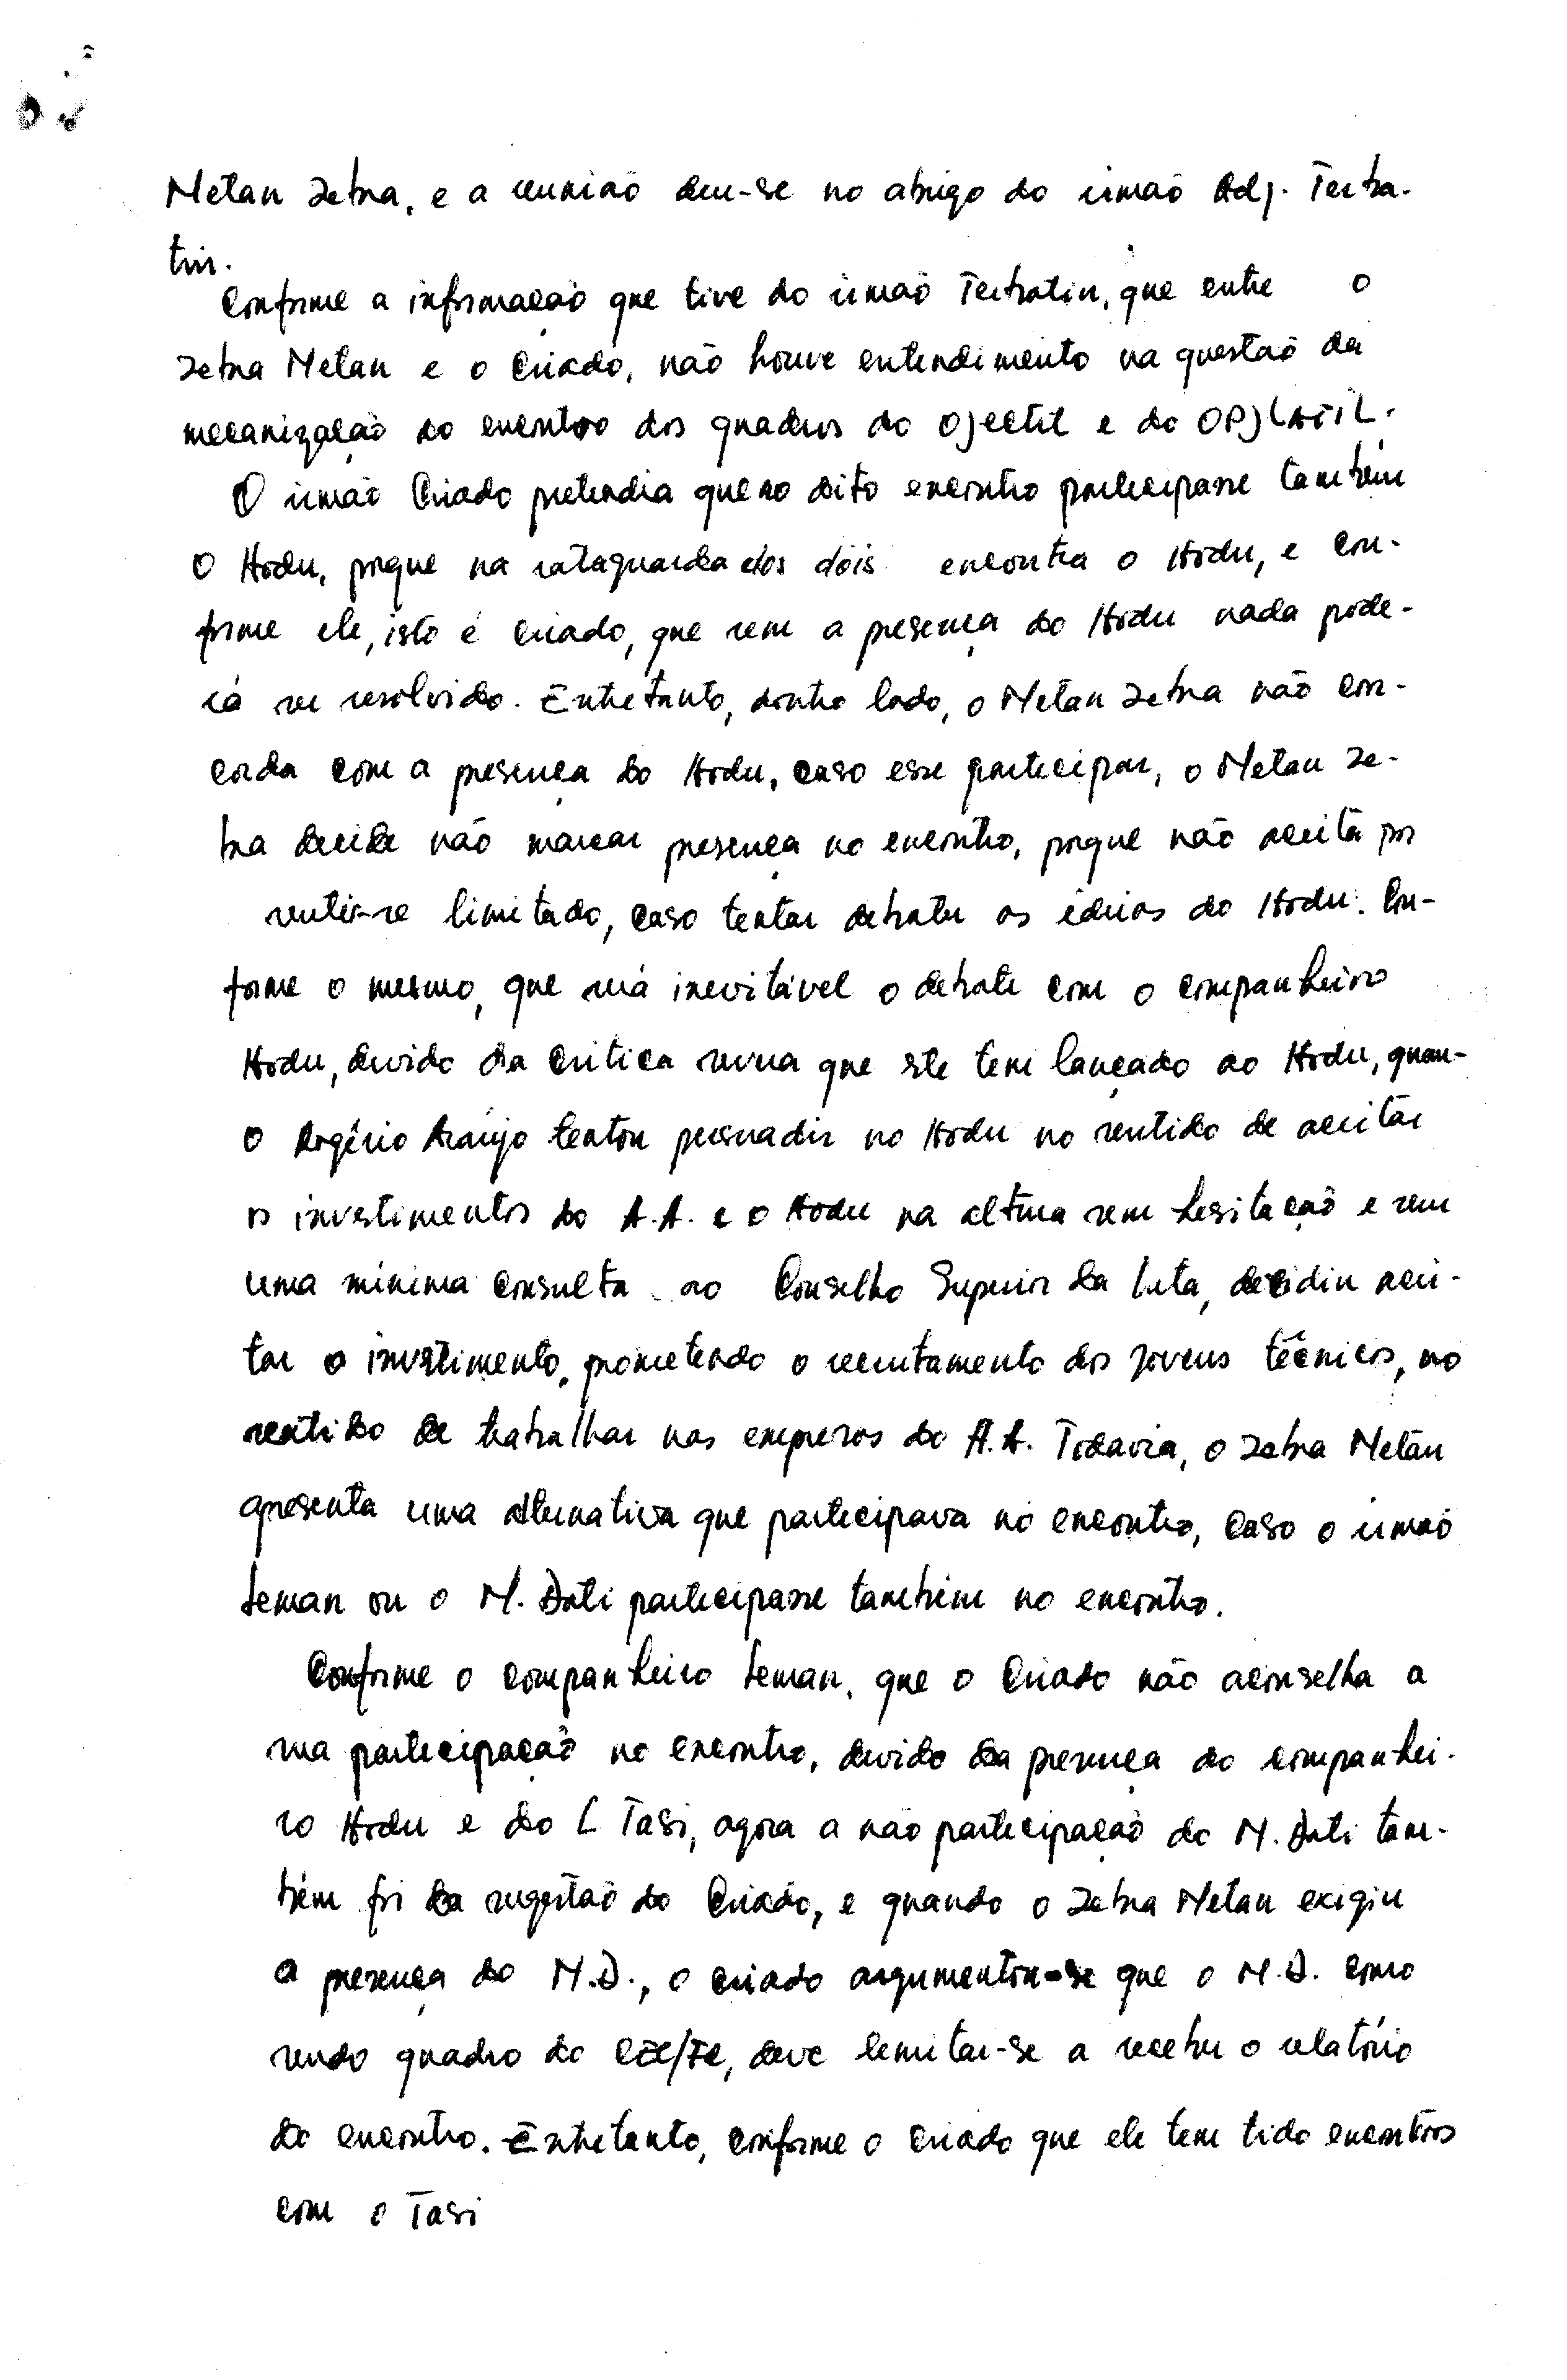 Metan Zebra, e a reunião deu-se no abrigo do irmão Adj. Tertra-
tin.
Conforme a informação que tive do irmão Tertratin, que entre o
Zebra Metan e o Criado, não houve entendimento na questão da
mecanização do encontro dos quadros do Ojectil e do OPJLATIL.
O irmão Criado pretendia que no dito encontro participasse também
O Hodu, porque na rataguarda dos dois encontra o Hodu, e con-
forme ele, isto é Criado, que sem a presença do Hodu nada pode-
rá ser resolvido. Entretanto, doutro lado, o Metan Zebra não con-
corda com a presença do Hodu, caso esse participar, o Metan Ze-
bra decide não marcar presença no encontro, porque não aceita por
sentir-se limitado, caso tentar debater as ideias do Hodu. Con-
forme o mesmo, que será inevitável o debate com o companheiro
Hodu, devido da critica severa que ele tem lançado ao Hodu, quan-
o Rogério Araújo tentou persuadir no Hodu no sentido de aceitar
os investimentos do A.A. e o Hodu na altura sem hesitação e sem
uma minima consulta ao Conselho Superior da Luta, decidiu acei-
tar o investimento, prometendo o recrutamento dos jovens técnicos, no
sentido de trabalhar nas empresas do A.A. Todavia, o Zebra Metan
apresenta uma alternativa que participava no encontro, caso o irmão
Leman ou o M. Dati participasse também no encontro.
Conforme o companheiro Leman, que o Criado não aconselha a
sua participação no encontro, devido da presença do companhei-
ro Hodu e do L Tasi, agora a não participação do M. Dati tam-
bém foi da sugestão do Criado, e quando o Zebra Metan exigiu
a presença do M.D., o Criado argumentou-se que o M.D. como
sendo quadro do CEE/FC, deve lemitar-se a receber o relatório
do encontro. Entretanto, conforme o Criado que ele tem tido encontros
com o Tasi